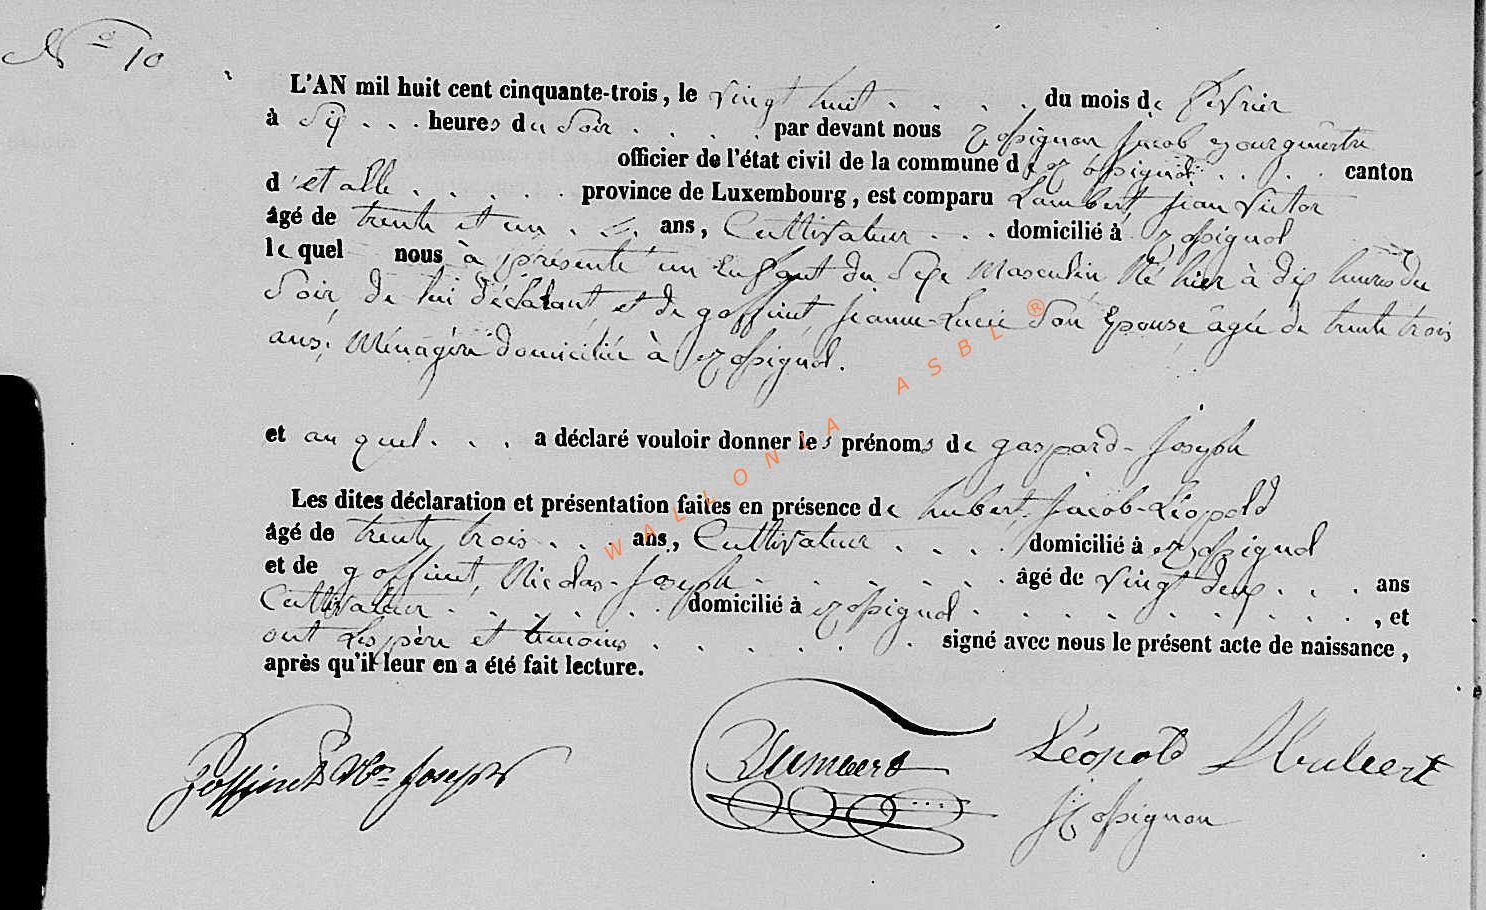 N° 10
L'AN mil huit cent cinquante-trois, le vingt huit . . . . du mois de février
à six . . . heures du soir . . . . par devant nous Rossignon Jacob Bourguestre
officier de l'état civil de la commune de Rossignol . . . canton
d'etalle . . . . . province de Luxembourg, est comparu Lambert, Jean Victor
âgé de trente et un . . . ans, Cultivateur . . . domicilié à Rossignol
lequel nous à présenté un Enfant du Sexe Masculin Né hier à dix heures du
Soir, de lui déclarant, et de goffinet, Jeanne-Lucie Son Epouse âgée de trente trois
ans, Ménagère domiciliée à Rossignol.
et au quel . . . a déclaré vouloir donner les prénoms de gaspard-Joseph
Les dites déclaration et présentation faites en présence de hubert, Jacob-Léopold
âgé de trente trois . . . ans, Cultivateur . . . . domicilié à Rossignol
et de goffinet, Nicolas-Joseph . . . . . . . âgé de vingt deux . . . ans
Cultivateur . . . . . . domicilié à Rossignol . . . . . . . . . , et
ont Les père et temoins . . . . . . signé avec nous le présent acte de naissance,
après qu'il leur en a été fait lecture.
Goffinet Nas Joseph Lambert Léopold Hubert
J Rossignon
WALLONIA ASBL ®